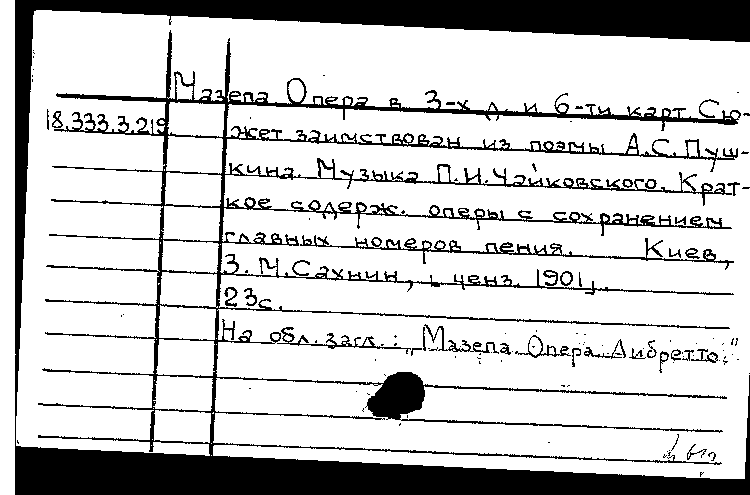 Мазепа Опера в 3-х д. и 6-ти карт. Сю-
18.333.3.219. жет заимствован из поэмы А.С. Пуш-
кина. Музыка П.И. Чайковского. Крат-
кое содерж. оперы с сохранением
главных номеров пения. Киев,
З. М. Сахнин, ценз. 1901].
23с.
На обл. загл.: „Мазепа. Опера. Либретто."